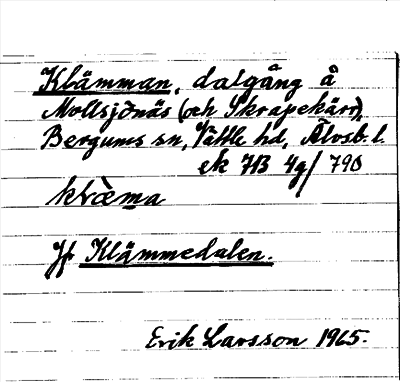 Klämman, dalgång å
Mollsjönäs (och Skrapekärr),
Bergums sn, Vättle hd, Älvsb. l.
ek 7B 4g/ 790
klæ̀ma
Jf Klämmedalen.
Erik Larsson 1965.